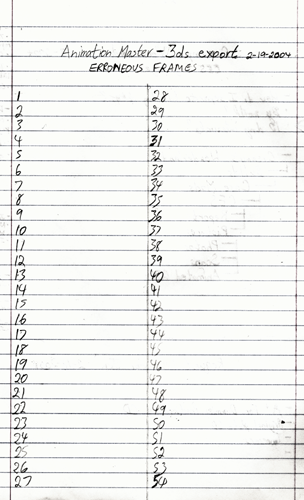 Animation Master - 3ds export 2-19-2004
ERRONEOUS FRAMES
1
2
3
4
5
6
7
8
9
10
11
12
13
14
15
16
17
18
19
20
21
22
23
24
25
26
27
28
29
30
31
32
33
34
35
36
37
38
39
40
41
42
43
44
45
46
47
48
49
50
51
52
53
54